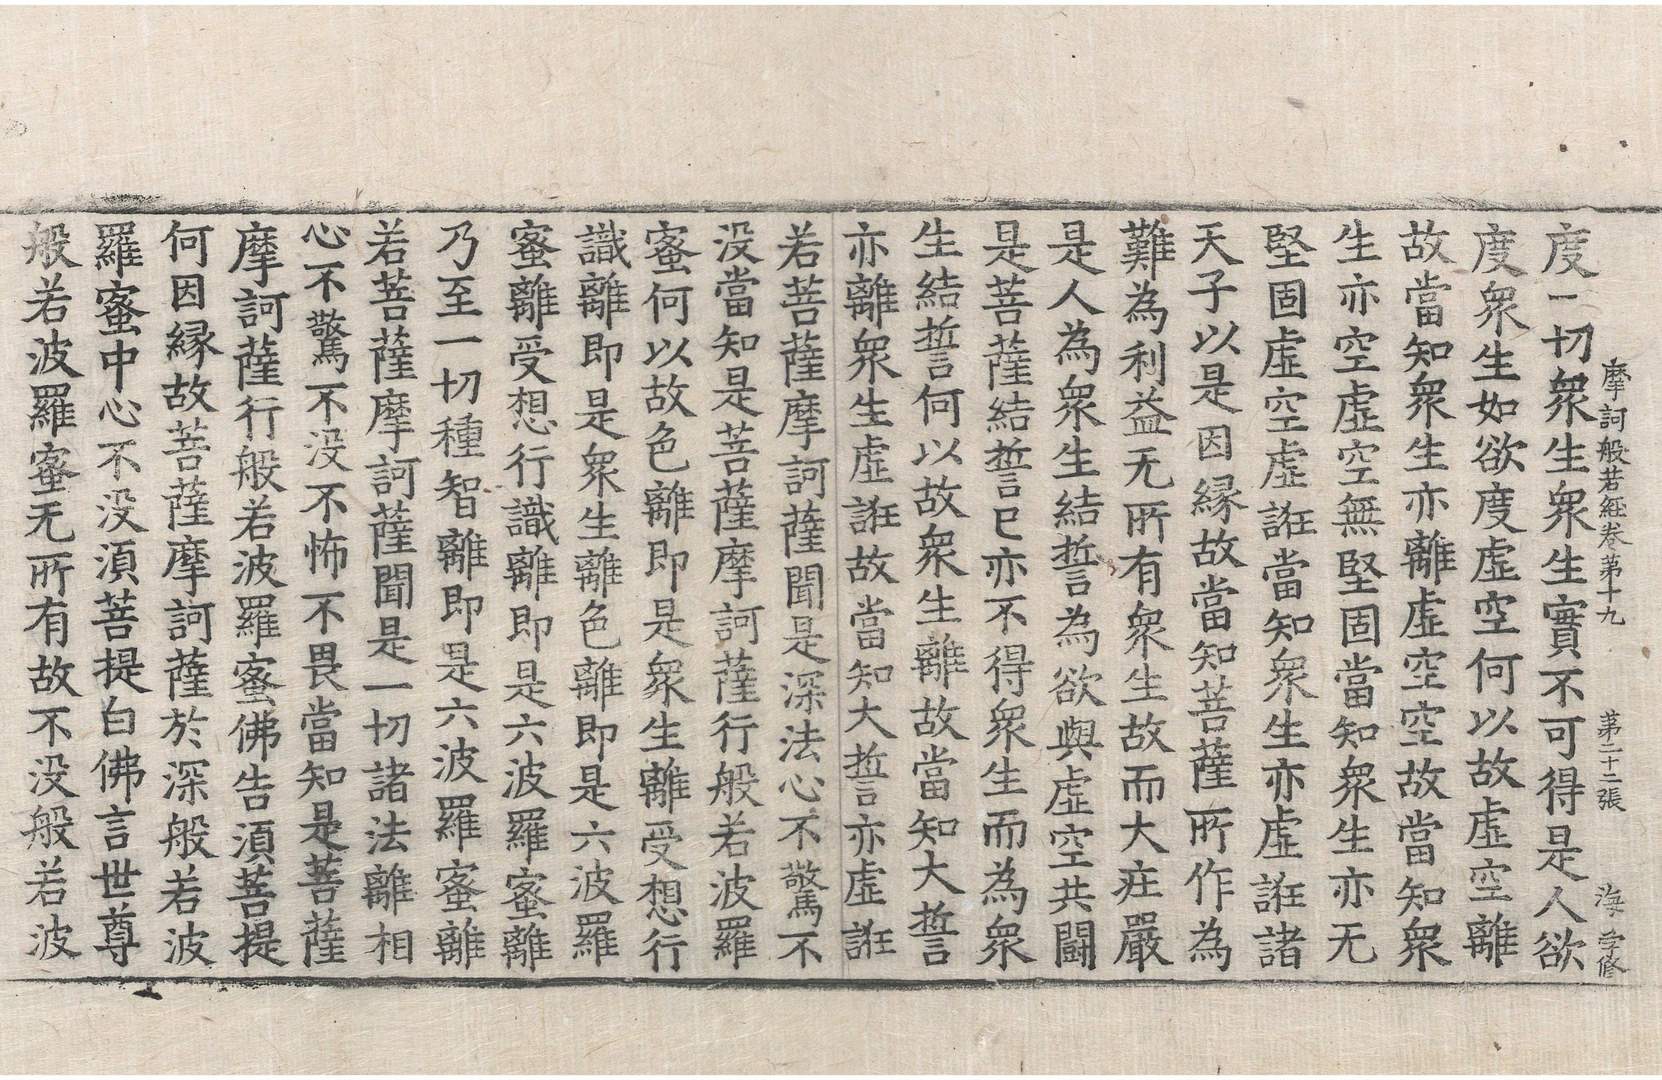 摩訶般若經卷第十九 第二十二張 海 孚修
度一切衆生衆生實不可得是人欲
度衆生如欲度虛空何以故虛空離
故當知衆生亦離虛空空故當知衆
生亦空虛空無堅固當知衆生亦无
堅固虛空虛誑當知衆生亦虛誑諸
天子以是因縁故當知菩薩所作為
難為利益无所有衆生故而大莊嚴
是人為衆生結誓為欲與虛空共鬪
是菩薩結誓已亦不得衆生而為衆
生結誓何以故衆生離故當知大誓
亦離衆生虛誑故當知大誓亦虛誑
若菩薩摩訶薩聞是深法心不驚不
没當知是菩薩摩訶薩行般若波羅
蜜何以故色離即是衆生離受想行
識離即是衆生離色離即是六波羅
蜜離受想行識離即是六波羅蜜離
乃至一切種智離即是六波羅蜜離
若菩薩摩訶薩聞是一切諸法離相
心不驚不没不怖不畏當知是菩薩
摩訶薩行般若波羅蜜佛告湏菩提
何因縁故菩薩摩訶薩於深般若波
羅蜜中心不没湏菩提白佛言世尊
般若波羅蜜无所有故不没般若波